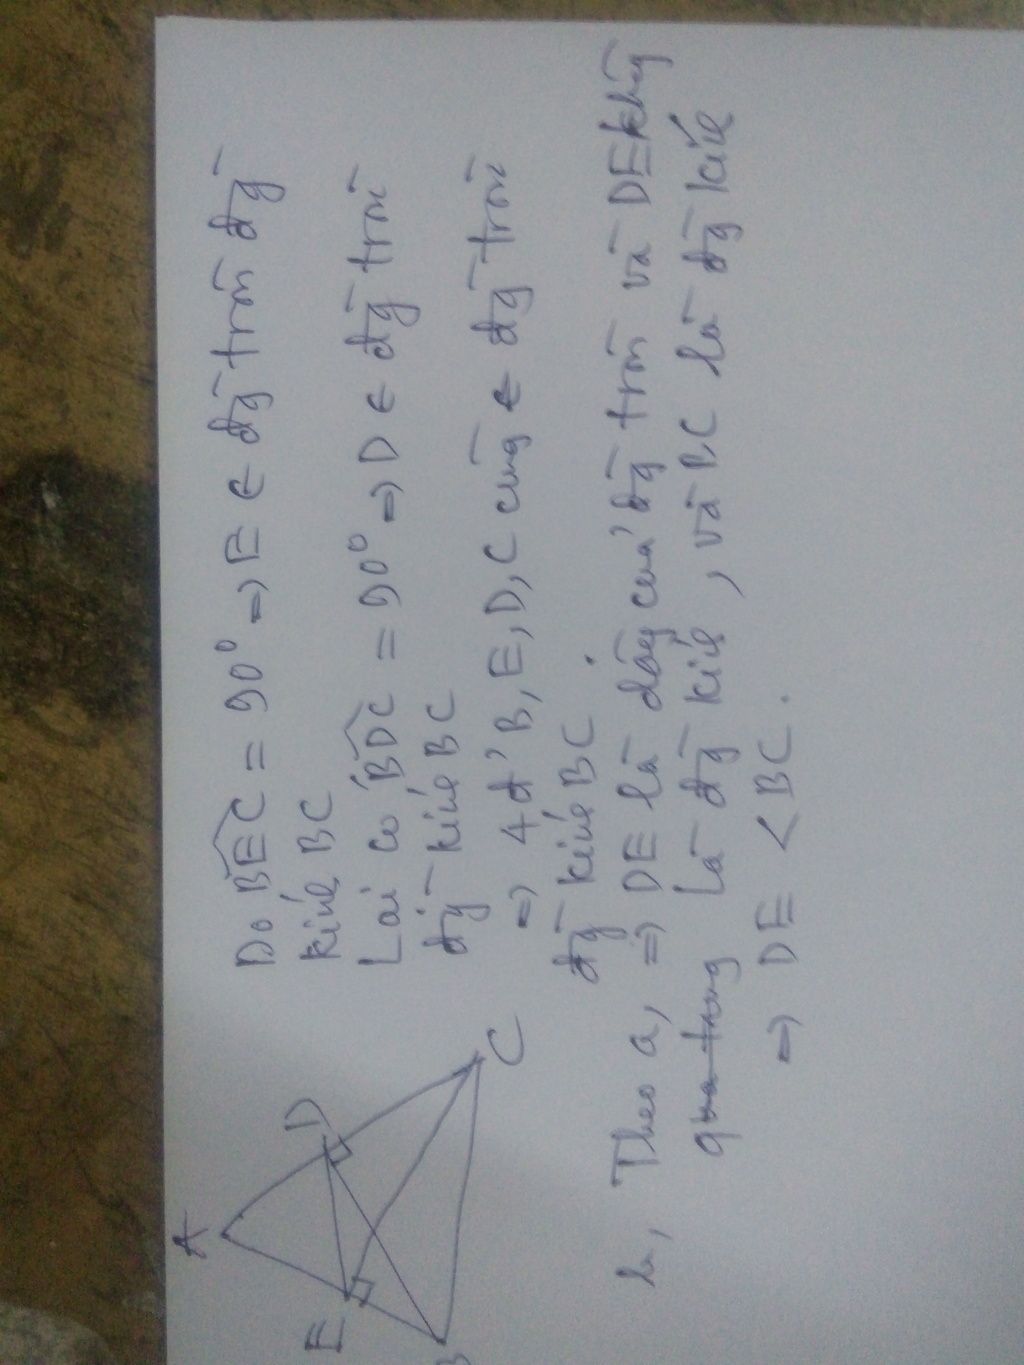 A
E
D
B
C
Do BEC = 90° => E ∈ đg̀ tròn đg̀
kính BC
Lại có BDC = 90° => D ∈ đg̀ tròn
đg̀ kính BC
=> 4 đ' B, E, D, C cùng ∈ đg̀ tròn
đg̀ kính BC.
b, Theo a, => DE là dây của đg̀ tròn và DE không
qua trung là đg̀ kính, và BC là đg̀ kính
=> DE < BC.